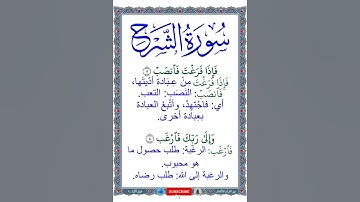 سُورَةُ الشَّرْحِ
فَإِذَا فَرَغْتَ فَٱنصَبْ ٧
فَإِذَا فَرَغْتَ مِنْ عِبَادَةٍ أَدَّيْتَهَا،
فَٱنصَبْ: النَّصَب: التعب.
أي: فَاجْتَهِدْ، وأَتْبِعْ العبادة
بعِبادة أخرى.
وَإِلَىٰ رَبِّكَ فَٱرْغَب ٨
فَٱرْغَب: الرغبة: طلب حصول ما
هو محبوب.
والرغبة إلى الله: طلب رضاه.
SUBSCRIBE